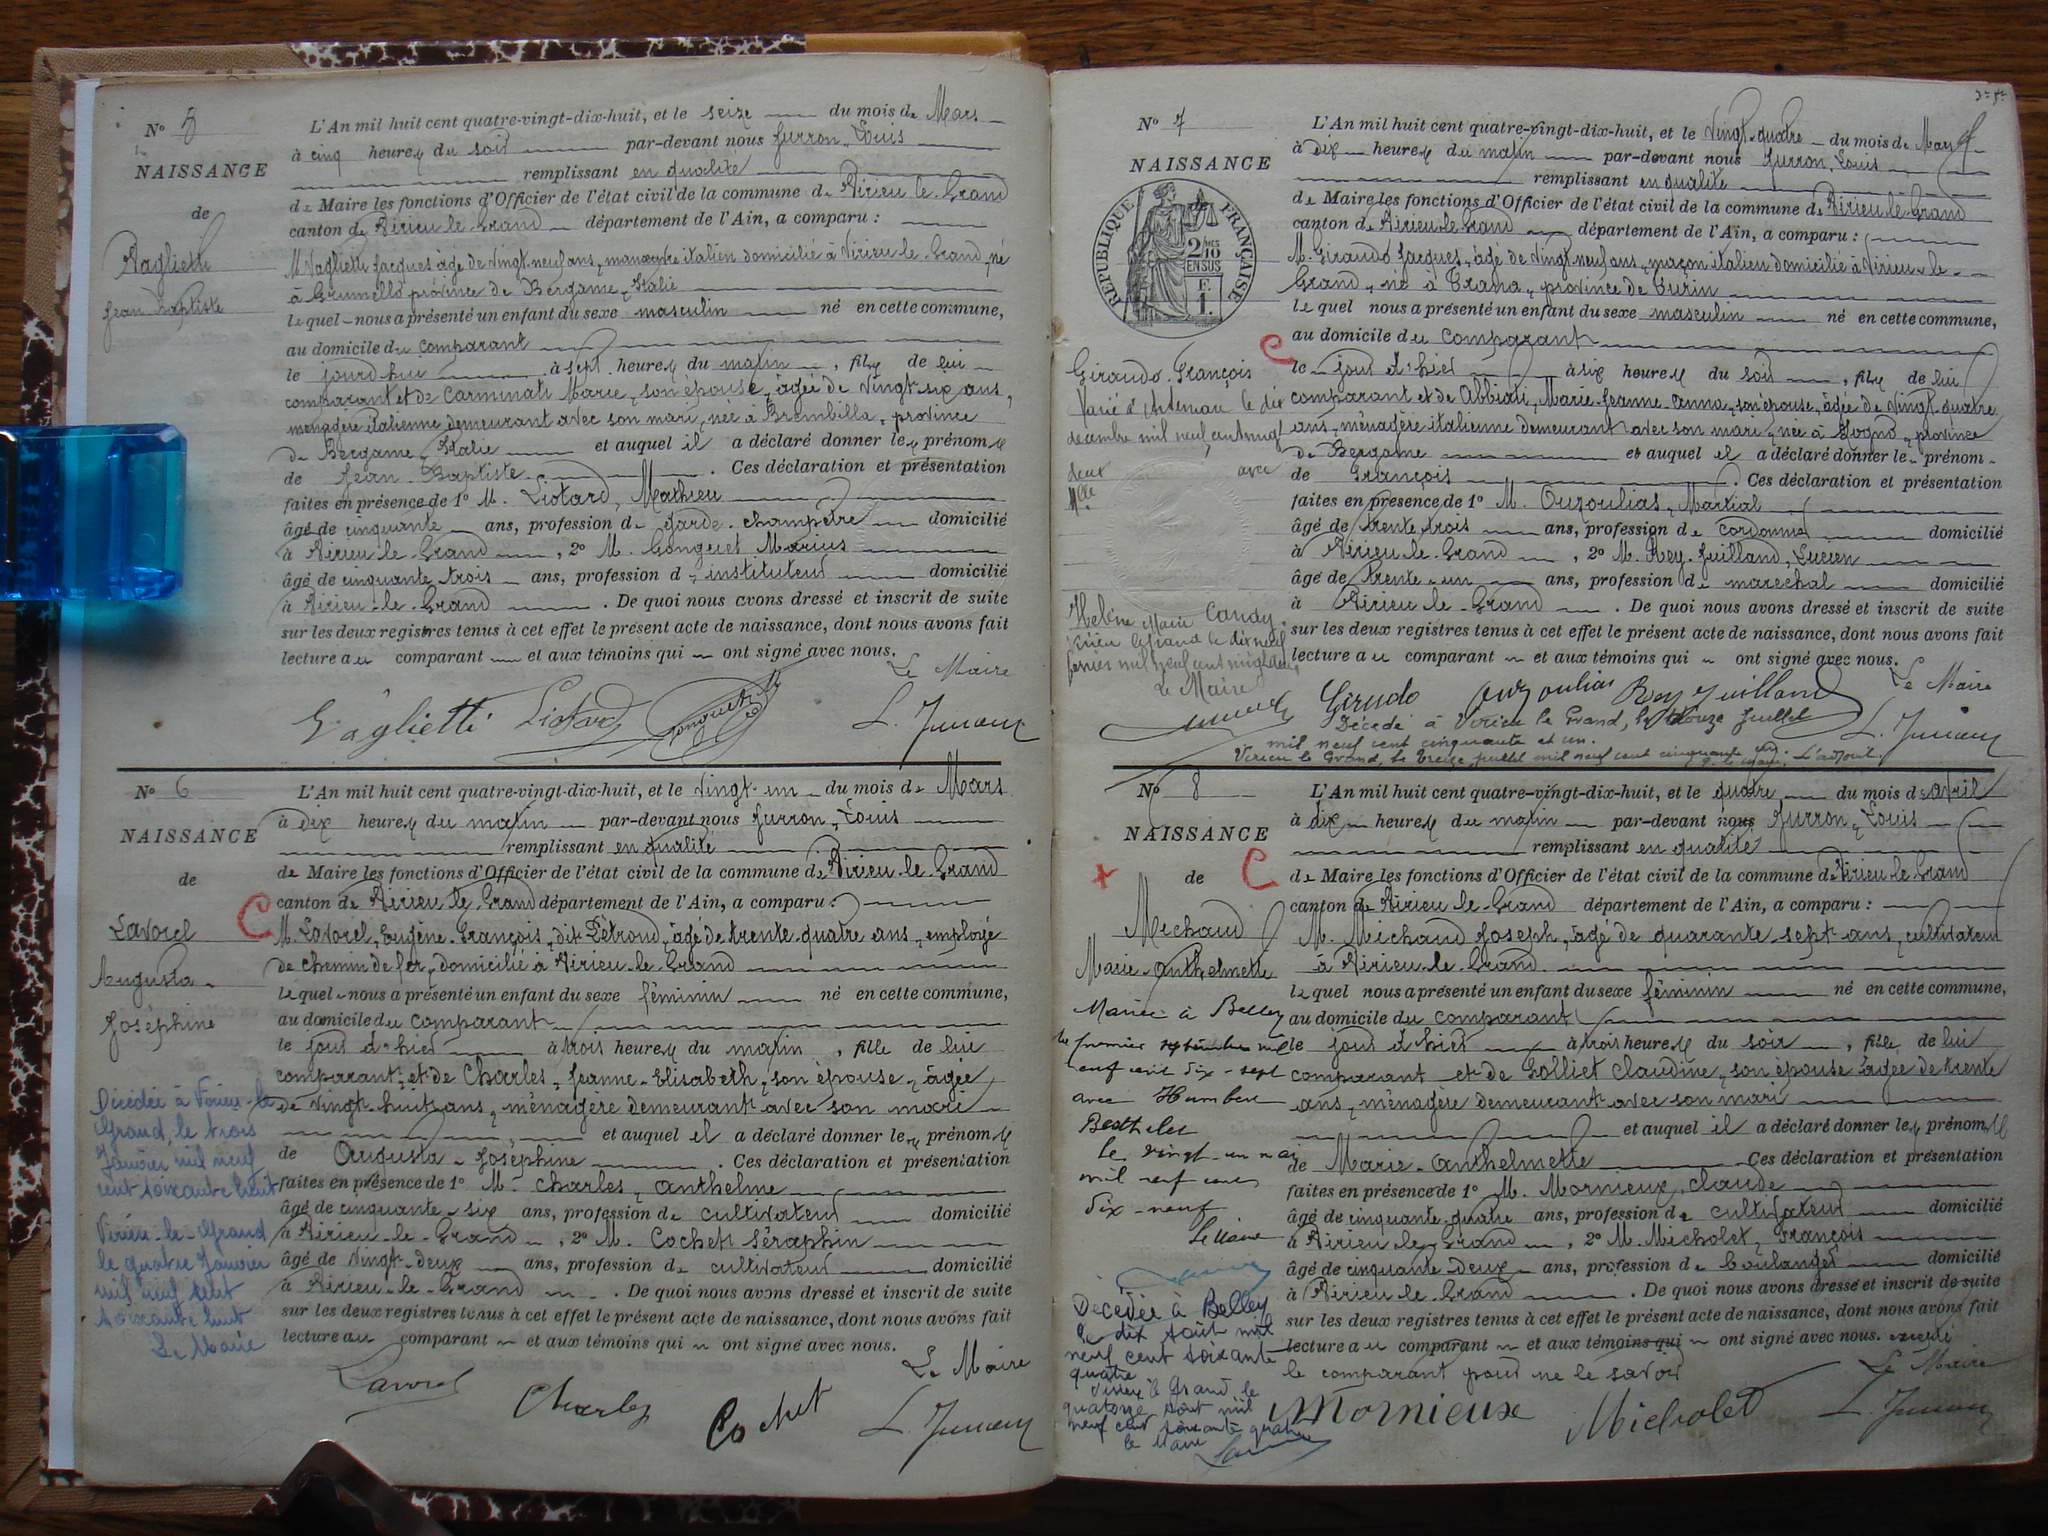 N° 5
NAISSANCE
de
Vaglietti
Jean Baptiste
L'An mil huit cent quatre-vingt-dix-huit, et le seize du mois de Mars
à cinq heures du soir par-devant nous Jurron, Louis
remplissant en qualité
de Maire les fonctions d'Officier de l'état civil de la commune de Virieu-le-Grand
canton de Virieu-le-Grand département de l'Ain, a comparu :
M. Vaglietti Jacques, âgé de vingt-neuf ans, manœuvre italien domicilié à Virieu-le-Grand, né
à Grumello province de Bergame, Italie
lequel nous a présenté un enfant du sexe masculin né en cette commune,
au domicile du comparant
le jourd'hui à sept heures du matin, fils de lui
comparant et de Carminati Marie, son épouse, âgée de vingt-six ans,
ménagère italienne demeurant avec son mari, née à Brembilla, province
de Bergame, Italie et auquel il a déclaré donner les prénoms
de Jean-Baptiste. Ces déclaration et présentation
faites en présence de 1° M. Liotard, Mathieu
âgé de cinquante ans, profession de garde-champêtre domicilié
à Virieu-le-Grand, 2° M. Gonguet Marius
âgé de cinquante trois ans, profession d'instituteur domicilié
à Virieu-le-Grand. De quoi nous avons dressé et inscrit de suite
sur les deux registres tenus à cet effet le présent acte de naissance, dont nous avons fait
lecture au comparant et aux témoins qui ont signé avec nous.
Le Maire
Vaglietti Liotard L. Jurron
N° 6
NAISSANCE
de
Lavorel
Augusta
Joséphine
Décédée à Virieu-le-
Grand, le trois
Janvier mil neuf
cent soixante huit
Virieu-le-Grand
le quatre Janvier
mil neuf cent
soixante huit
Le Maire
L'An mil huit cent quatre-vingt-dix-huit, et le vingt-un du mois de Mars
à dix heures du matin par-devant nous Jurron, Louis
remplissant en qualité
de Maire les fonctions d'Officier de l'état civil de la commune de Virieu-le-Grand
canton de Virieu-le-Grand département de l'Ain, a comparu :
M. Lavorel, Eugène-François, dit Pétrond, âgé de trente-quatre ans, employé
de chemin de fer, domicilié à Virieu-le-Grand
lequel nous a présenté un enfant du sexe féminin né en cette commune,
au domicile du comparant
le jour d'hier à trois heures du matin, fille de lui
comparant, et de Charles, Jeanne-Elisabeth, son épouse, âgée
de vingt-huit ans, ménagère demeurant avec son mari
et auquel il a déclaré donner les prénoms
de Augusta-Joséphine. Ces déclaration et présentation
faites en présence de 1° M. Charles, Anthelme
âgé de cinquante-six ans, profession de cultivateur domicilié
à Virieu-le-Grand, 2° M. Cochet Séraphin
âgé de vingt-deux ans, profession de cultivateur domicilié
à Virieu-le-Grand. De quoi nous avons dressé et inscrit de suite
sur les deux registres tenus à cet effet le présent acte de naissance, dont nous avons fait
lecture au comparant et aux témoins qui ont signé avec nous.
Le Maire
Lavorel Charles Cochet L. Jurron
N° 7
NAISSANCE
RÉPUBLIQUE FRANÇAISE
2/10
EN SUS
F.
1.
Giraudo François
Marié à le dix
décembre mil neuf cent vingt
deux avec
Mlle
Hélène Marie Candy.
Virieu le Grand le dix neuf
mil neuf cent vingt deux
Le Maire
L'An mil huit cent quatre-vingt-dix-huit, et le vingt-quatre du mois de Mars
à dix heures du matin par-devant nous Jurron, Louis
remplissant en qualité
de Maire les fonctions d'Officier de l'état civil de la commune de Virieu-le-Grand
canton de Virieu-le-Grand département de l'Ain, a comparu :
M. Giraudo Jacques, âgé de vingt-neuf ans, maçon italien domicilié à Virieu-le-
Grand, né à Trana, province de Turin
lequel nous a présenté un enfant du sexe masculin né en cette commune,
au domicile du comparant
le jour d'hier à six heures du soir, fils de lui
comparant et de Abbiati, Marie-Jeanne-Anna, son épouse, âgée de vingt-quatre
ans, ménagère italienne demeurant avec son mari, née à Gogno, province
de Bergame et auquel il a déclaré donner le prénom
de François. Ces déclaration et présentation
faites en présence de 1° M. Ouzoulias, Martial
âgé de trente trois ans, profession de cordonnier domicilié
à Virieu-le-Grand, 2° M. Rey-Juilland, Lucien
âgé de trente-un ans, profession de maréchal domicilié
à Virieu-le-Grand. De quoi nous avons dressé et inscrit de suite
sur les deux registres tenus à cet effet le présent acte de naissance, dont nous avons fait
lecture au comparant et aux témoins qui ont signé avec nous.
Le Maire
Girudo Ouzoulias Rey Juilland L. Jurron
Décédé à Virieu le Grand, le douze Juillet
mil neuf cent cinquante et un.
Virieu le Grand, le treize juillet mil neuf cent cinquante un. P. le maire, L'adjoint.
N° 8
NAISSANCE
de
Michaud
Marie-Anthelmette
Mariée à Belley
le premier septembre mil
neuf cent dix-sept
avec Humbert
Berthelet
Le vingt-un mai
mil neuf cent
dix-neuf
Le Maire
Décédée à Belley
le dix août mil
neuf cent soixante
quatre
Virieu le Grand, le
quatorze août mil
neuf cent soixante quatre
le Maire
L'An mil huit cent quatre-vingt-dix-huit, et le quatre du mois d'avril
à dix heures du matin par-devant nous Jurron, Louis
remplissant en qualité
de Maire les fonctions d'Officier de l'état civil de la commune de Virieu-le-Grand
canton de Virieu-le-Grand département de l'Ain, a comparu :
M. Michaud Joseph, âgé de quarante-sept ans, cultivateur
à Virieu-le-Grand
lequel nous a présenté un enfant du sexe féminin né en cette commune,
au domicile du comparant
le jour d'hier à trois heures du soir, fille de lui
comparant et de Golliet Claudine, son épouse âgée de trente
ans, ménagère demeurant avec son mari
et auquel il a déclaré donner les prénoms
de Marie-Anthelmette. Ces déclaration et présentation
faites en présence de 1° M. Mornieux, Claude
âgé de cinquante-quatre ans, profession de cultivateur domicilié
à Virieu-le-Grand, 2° M. Micholet, François
âgé de cinquante-deux ans, profession de boulanger domicilié
à Virieu-le-Grand. De quoi nous avons dressé et inscrit de suite
sur les deux registres tenus à cet effet le présent acte de naissance, dont nous avons fait
lecture au comparant et aux témoins qui ont signé avec nous. excepté
le comparant pour ne le savoir
Le Maire
Mornieux Micholet L. Jurron